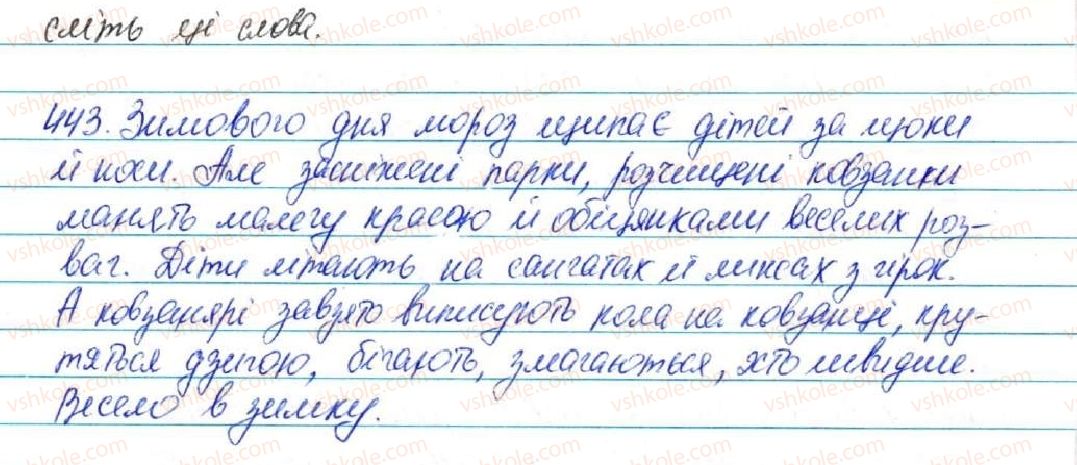 сміть ці слова.
443. Зимового дня мороз щипає дітей за щоки
й носи. Але засніжені парки, розчищені ковзанки
манять малечу красою й обіцянками веселих роз-
ваг. Діти літають на санчатах й лижах з гірок.
А ковзанярі завзято виписують кола на ковзанці, кру-
тяться дзигою, бігають, змагаються, хто швидше.
Весело взимку.
vshkole.com